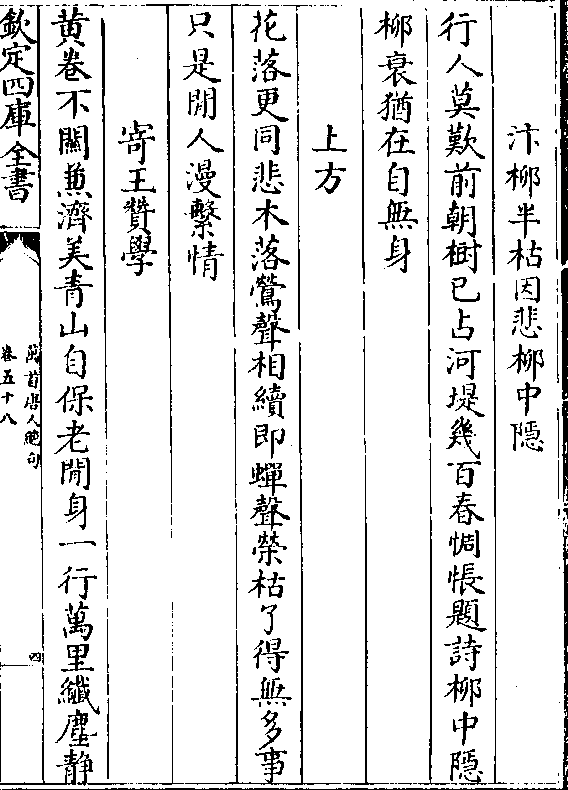 汴柳半枯因悲柳中隱
行人莫歎前朝樹已占河堤幾百春惆悵題詩柳中隱
柳衰猶在自無身
上方
花落更同悲木落鶯聲相續即蟬聲榮枯了得無多事
只是閒人漫繫情
寄王贊學
黄卷不關兼濟美青山自保老閒身一行萬里纎塵静
欽定四庫全書
萬首唐人絶句
卷五十八
四